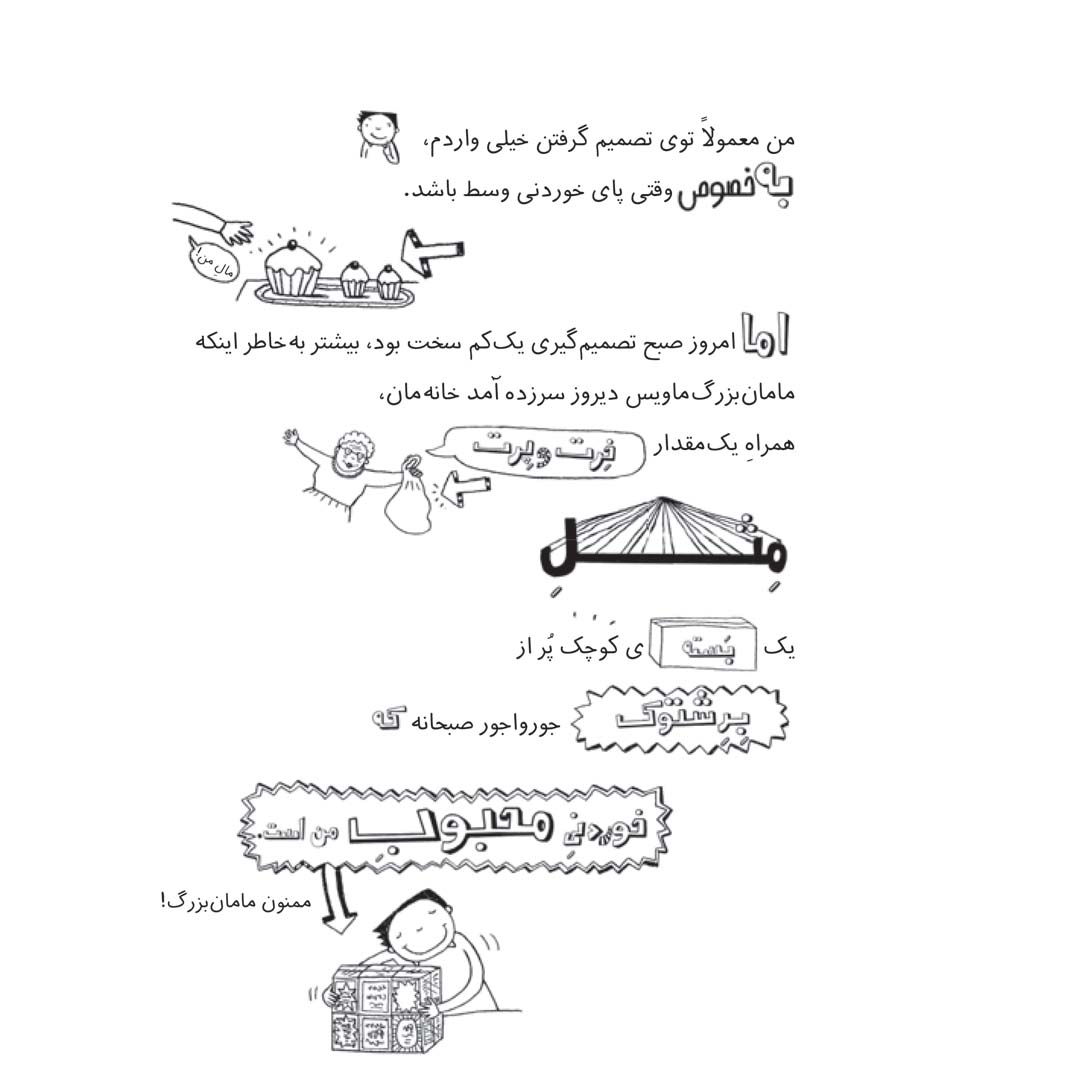 من معمولاً توی تصمیم گرفتن خیلی واردم،
به‌خصوص وقتی پای خوردنی وسط باشد.
مالِ من!
اما امروز صبح تصمیم‌گیری یک‌کم سخت بود، بیشتر به‌خاطر اینکه
مامان‌بزرگ‌ماویس دیروز سرزده آمد خانه‌مان،
همراهِ یک‌مقدار خِرت و پِرت
مِثلِ
یک بَسته ی کوچک پُر از
بِرِشتوک جورواجور صبحانه که
خوردنیِ محبوبِ من است.
ممنون مامان‌بزرگ!